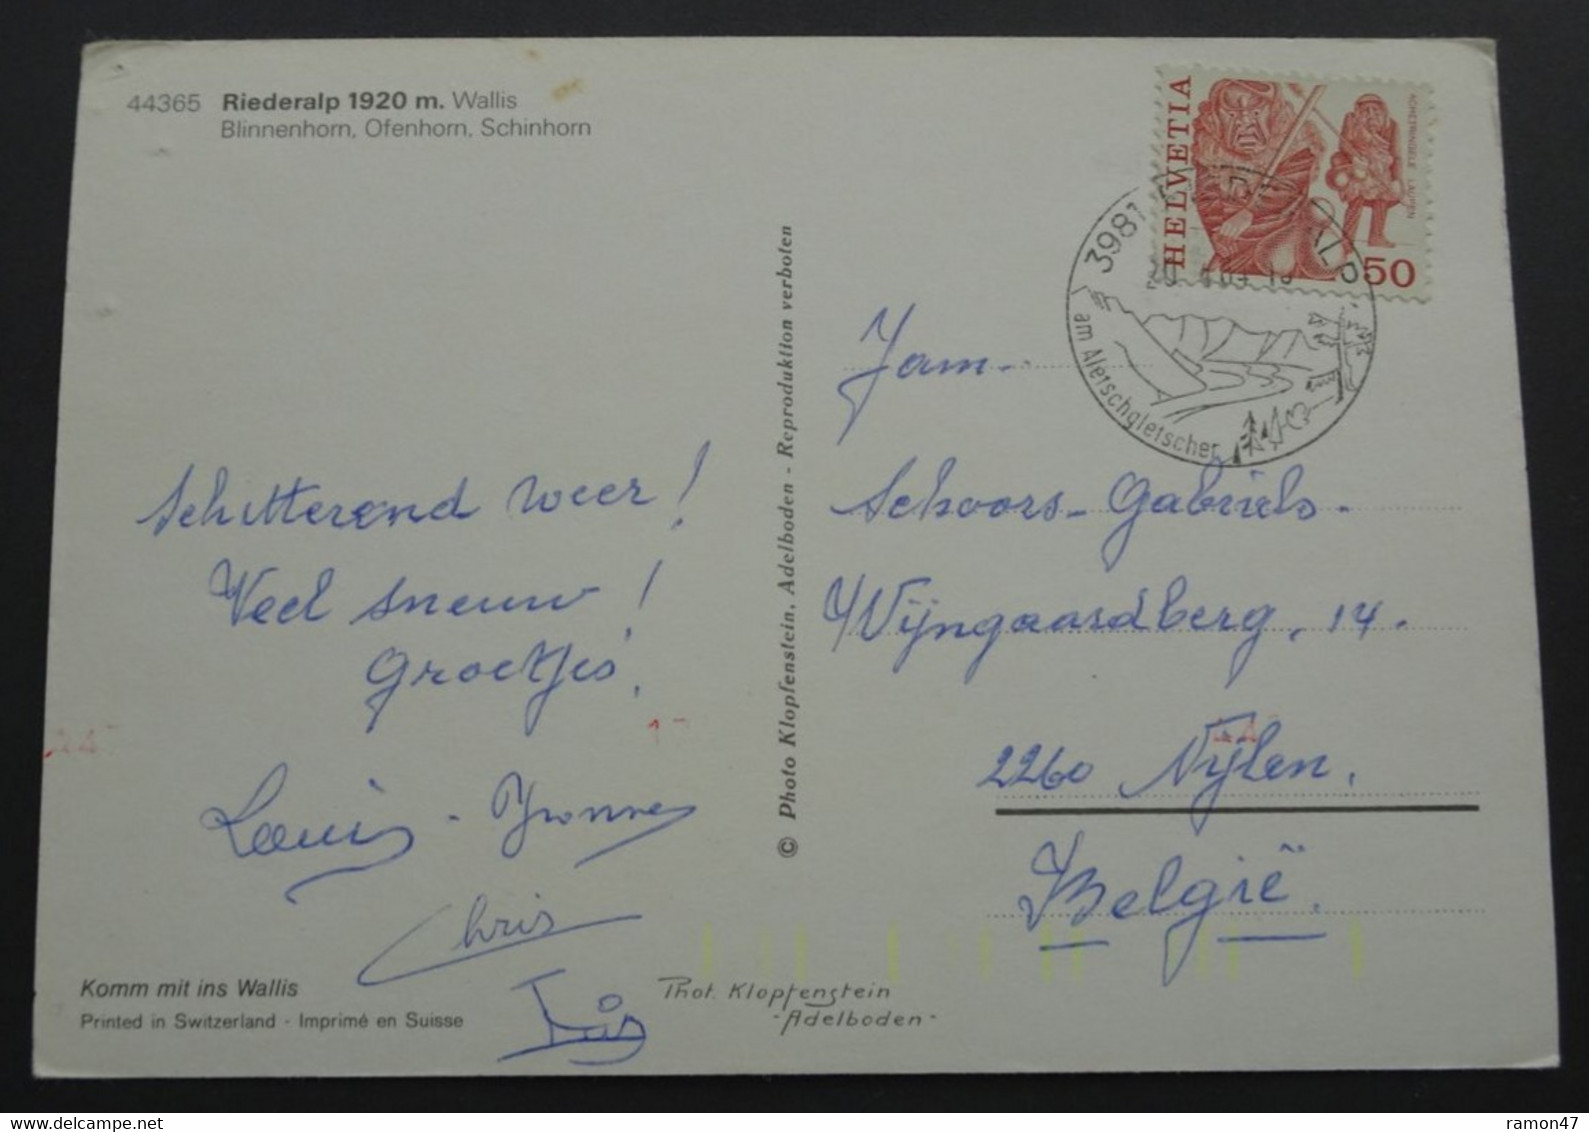 44365 Riederalp 1920 m. Wallis
Blinnenhorn, Ofenhorn, Schinhorn
Schitterend weer!
Veel sneuw!
Groetjes,
Louis - Yvonne
Chris
Komm mit ins Wallis
Printed in Switzerland - Imprimé en Suisse
© Photo Klopfenstein, Adelboden - Reproduktion verboten
Phot. Klopfenstein
- Adelboden -
HELVETIA
ACHETRINGELE LAUPEN
50
3981
am Aletschgletscher
Fam.
Schoors - Gabriels.
Wijngaardberg, 14.
2260 Nijlen.
België.
ramon47